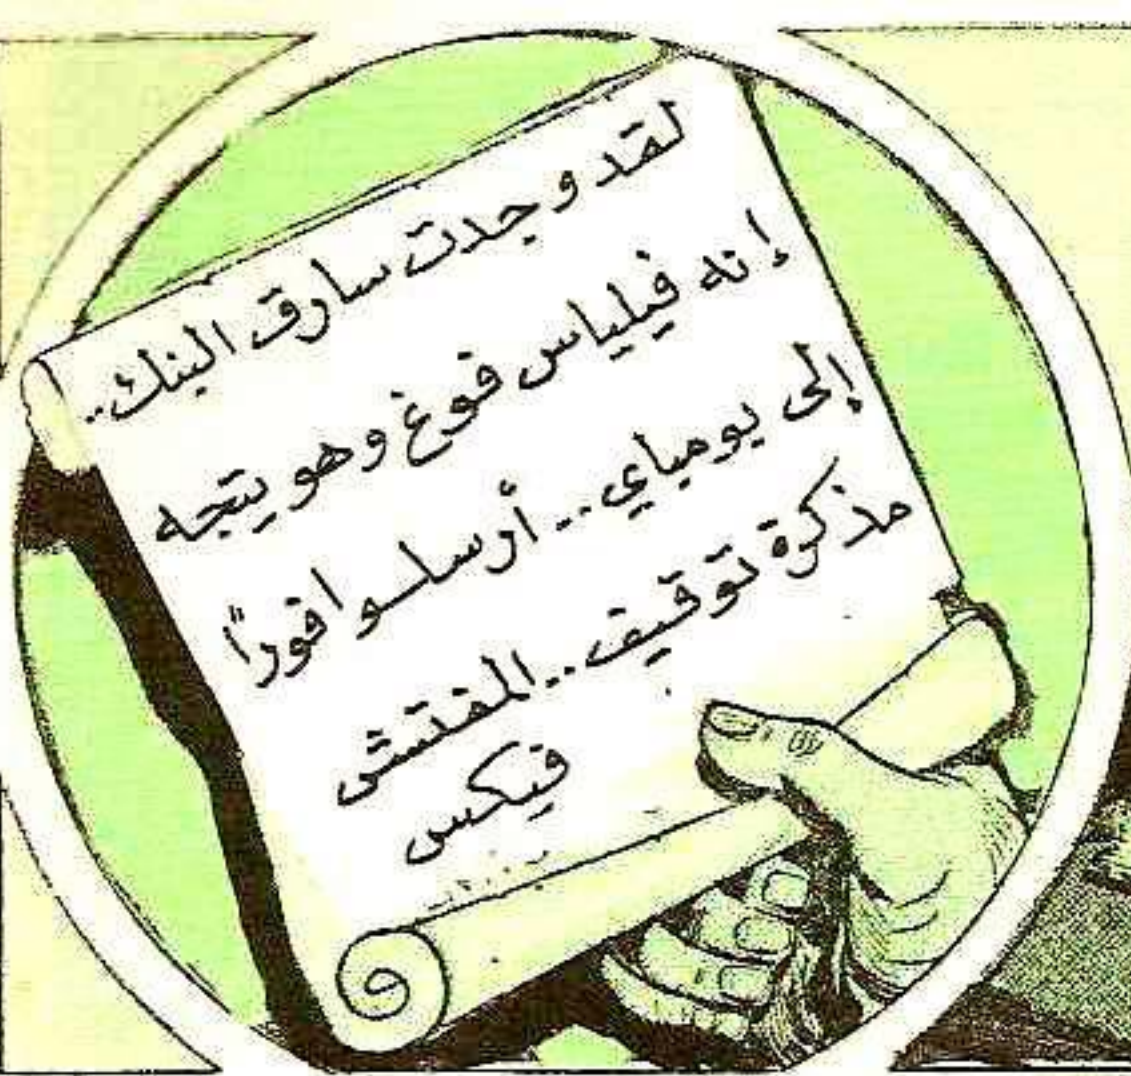 لقد وجدت سارق البنك..
إنه فيلياس فوغ وهو يتجه
إلى بومباي... أرسلوا فوراً
مذكرة توقيف.. المفتش
فيكس